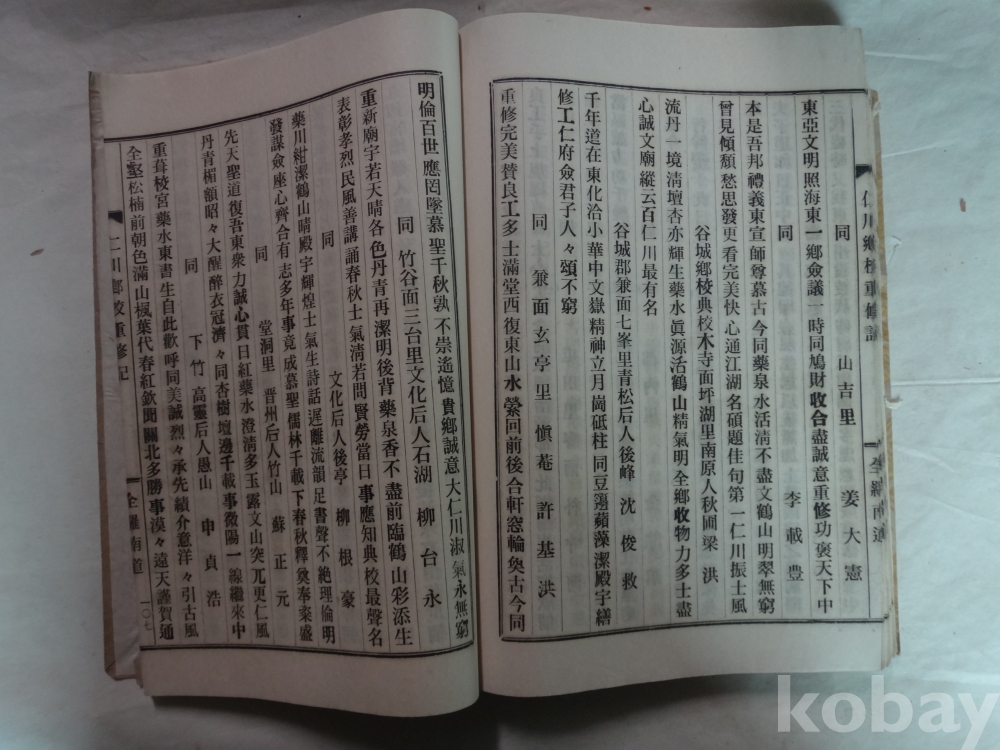 同 山吉里 姜大憲
東亞文明照海東一鄉僉議一時同鳩財收合盡誠意重修功褒天下中
同 李載豊
本是吾邦禮義東宣師尊慕古今同藥泉水活清不盡文鶴山明翠無窮
曾見傾頹愁思發更看完美快心通江湖名碩題佳句第一仁川振士風
谷城鄉校典校木寺面坪湖里南原人秋圃梁洪
流丹一境清壇杏亦輝生藥水眞源活鶴山精氣明全鄉收物力多士盡
心誠文廟縱云百仁川最有名
谷城郡兼面七峯里青松后人後峰 沈俊救
千年道在東化洽小華中文嶽精神立月崗砥柱同豆籩蘋藻潔殿宇繕
修工仁府僉君子人々頌不窮
同 兼面玄亭里愼菴 許基洪
重修完美贊良工多士滿堂西復東山水縈回前後合軒窓輪奐古今同
明倫百世應罔墜慕聖千秋孰不崇遙憶貴鄉誠意大仁川淑氣永無窮
同 竹谷面三台里文化后人石湖 柳台永
重新廟宇若天晴各色丹青再潔明後背藥泉香不盡前臨鶴山彩添生
表彰孝烈民風善講誦春秋士氣淸若問賢勞當日事應知典校最聲名
同 文化后人後亭 柳根豪
藥川紺潔鶴山晴殿宇輝煌士氣生詩話遲離流韻足書聲不絶理倫明
發謀僉座心齊合有志多年事竟成慕聖儒林千載下春秋釋奠奉粢盛
同 堂洞里 晋州后人竹山 蘇正元
先天聖道復吾東衆力誠心貫日紅藥水澄清多玉露文山突兀更仁風
丹青楣額昭々大醒醉衣冠濟々同杏樹壇邊千載事微陽一線繼來中
同 下竹 高靈后人愚山 申貞浩
重葺校宮藥水東書生自此歡呼同美誠烈々承先績介意洋々引古風
松楠前朝色滿山楓葉代春紅欽聞關北多勝事漠々遠天謹賀通
仁川鄉校重修記 全羅南道 一〇七